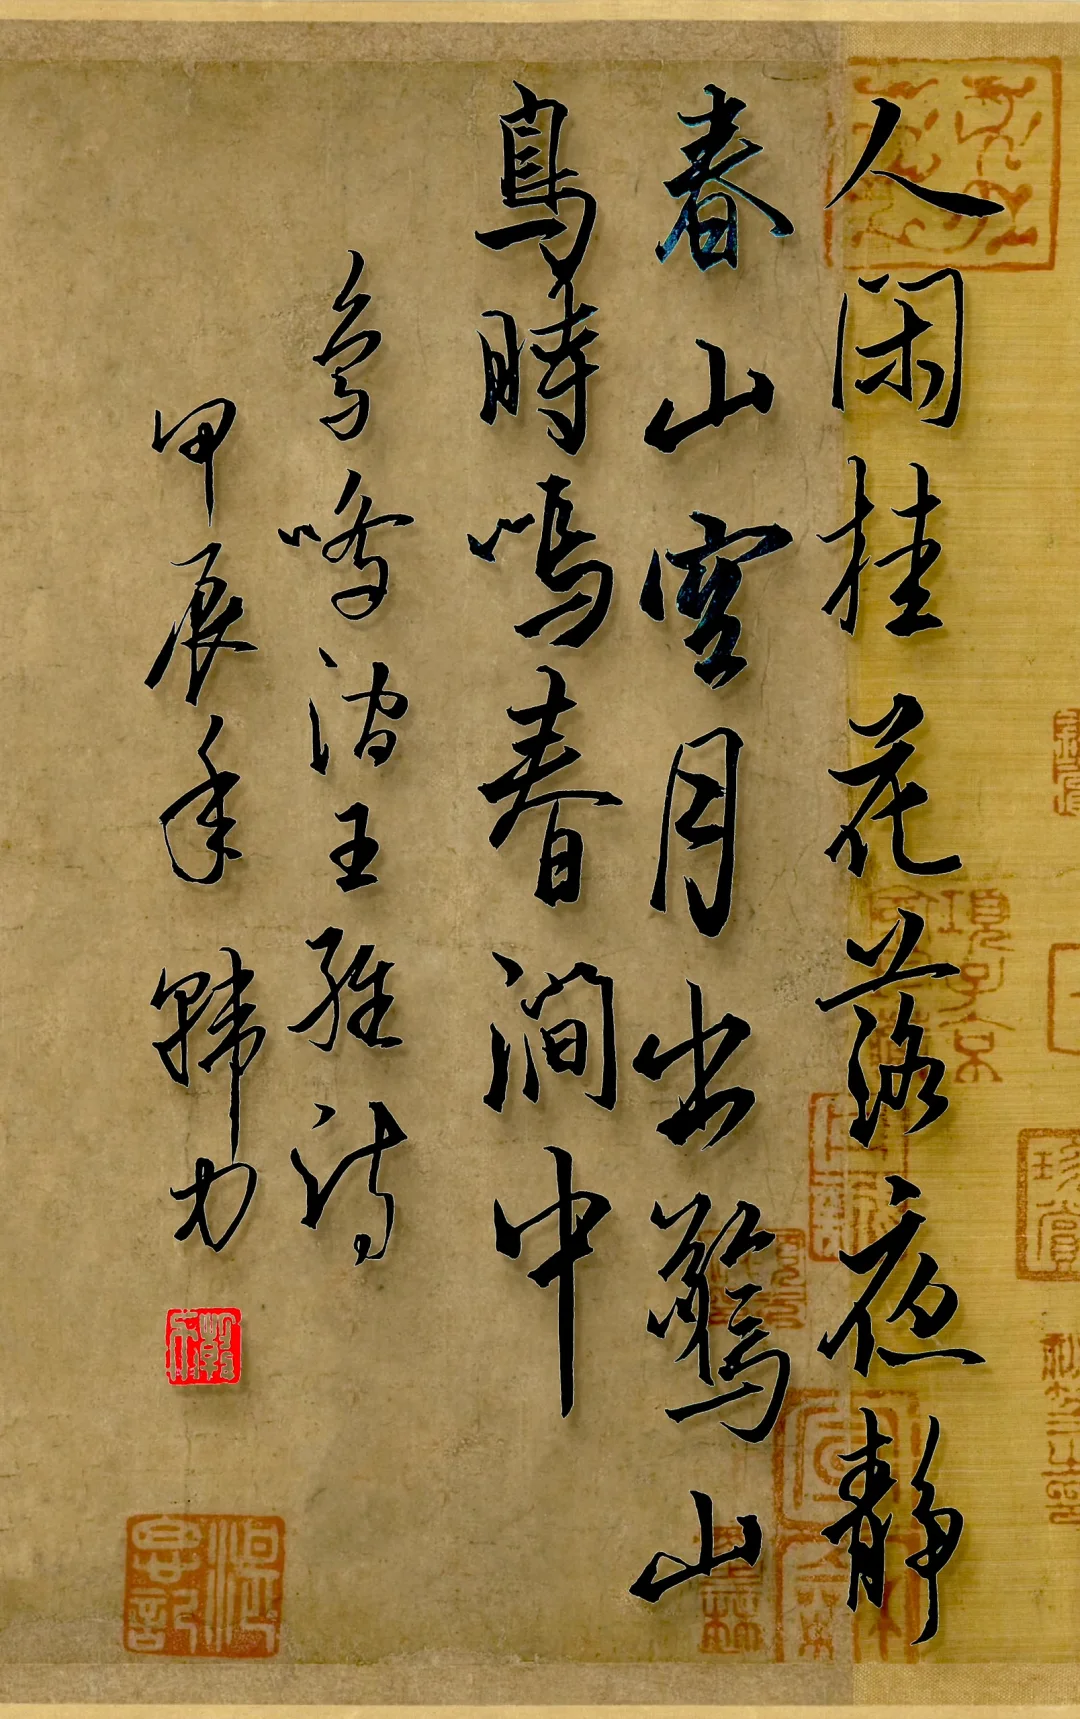 人闲桂花落夜静
春山空月出驚山
鳥時鳴春澗中
鸟鸣涧王維诗
甲辰年韩力